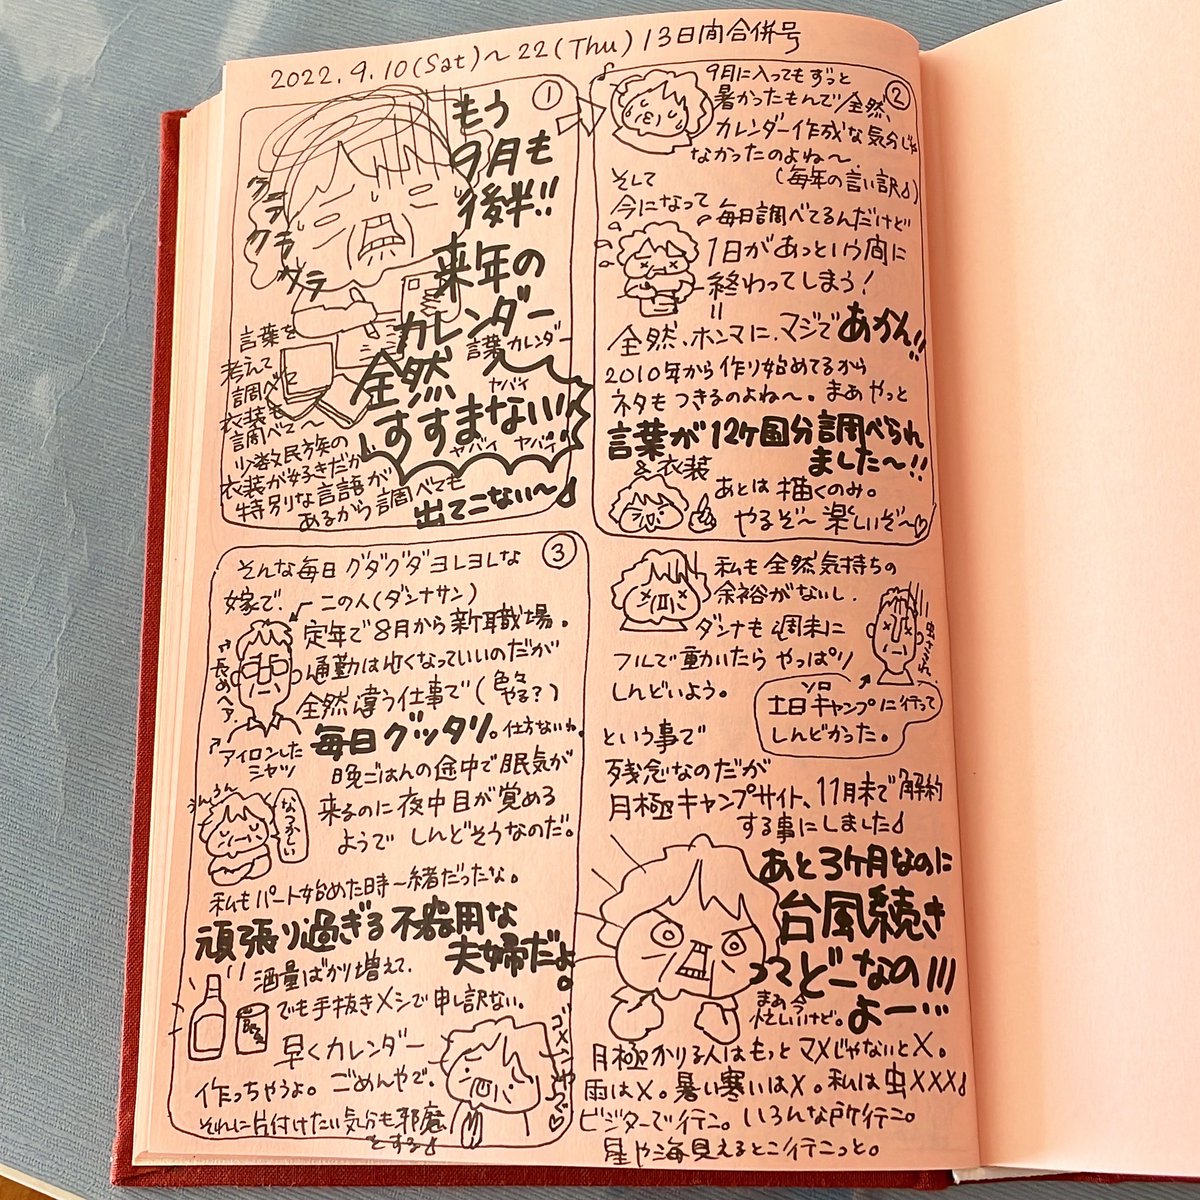 2022.9.10(Sat)~22(Thu) 13日間合併号
①
もう
9月も
後半!!
来年の
カレンダー
言葉カレンダー
全然
ヤバイ
すすまない!!
ヤバイ ヤバイ
クラクラ
クラ
言葉を
考えて
調べ
衣装も
調べて〜
少数民族の
衣装が好きだが
特別な言語が
あるから調べても
出てこない〜♪
②
9月に入ってもずっと
暑かったもんで全然、
カレンダー作成な気分じゃ
なかったのよね〜。
(毎年の言い訳♪)
そして
今になって
毎日調べてるんだけど
1日があっという間に
終わってしまう!
=
全然、ホンマに、マジであかん!!
2010年から作り始めてるから
ネタもつきるのよね〜。まぁやっと
言葉が12ヶ国分調べられ
&衣装
ました〜!!
あとは描くのみ。
やるぞ〜楽しいぞ〜♡
③
そんな毎日グダグダヨレヨレな
嫁で、
この人(ダンナサン)
定年で8月から新職場。
通勤は近くなっていいのだが
全然違う仕事で(色々やる?)
毎日グッタリ。仕方ないわ。
長めヘア
アイロンした
シャツ
晩ごはんの途中で眠気が
来るのに夜中目が覚める
ようで しんどそうなのだ。
うんうん
なつかしい
私もパート始めた時一緒だったな。
頑張り過ぎる不器用な
夫婦だよ。
酒量ばかり増えて、
でも手抜きメシで申し訳ない。
早くカレンダー
作っちゃうよ。ごめんやで、
それに片付けたい気分も邪魔
をする♪
ゴメンやで♡
私も全然気持ちの
余裕がないし、
ダンナも週末に
フルで動いたらやっぱり
しんどいよう。
虫さされ
ソロ
土日キャンプに行って
しんどかった。
という事で
残念なのだが
月極キャンプサイト、11月末で解約
する事にしました♪
あと3ヶ月なのに
台風続き
ってどーなの!!!
まぁ今
忙しいけど。
よー…
月極かりる人はもっとマメじゃないとX。
雨はX。暑い寒いはX。私は虫XXX♪
ビジターで行こ。いろんな所行こ。
星や海見えるとこ行こっと。